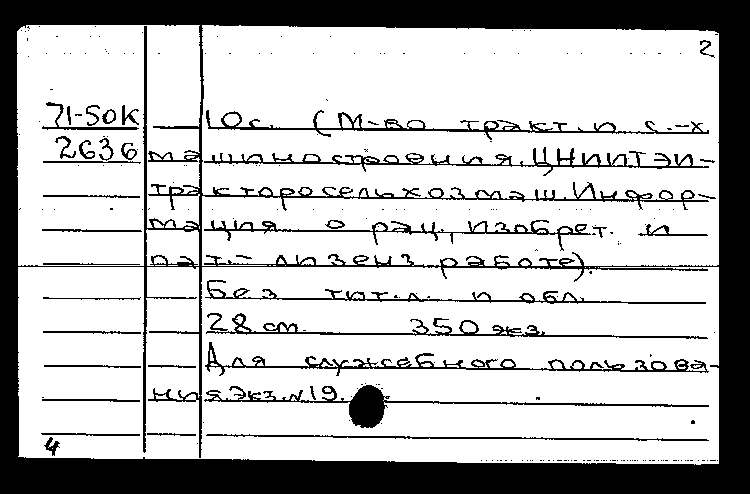 2
71-50К 10с. (М-во тракт. и с.-х.
2636 машиностроения. ЦНИИТЭИ-
тракторосельхозмаш. Инфор-
мация о рац., изобрет. и
пат.-лизенз работе).
Без тит. л. и обл.
28 см. 350 экз.
Для служебного пользова-
ния. Экз. № 19.
4